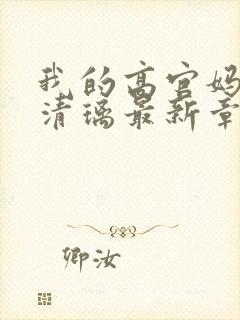 我的高官妈
清璃最新章
卿汝